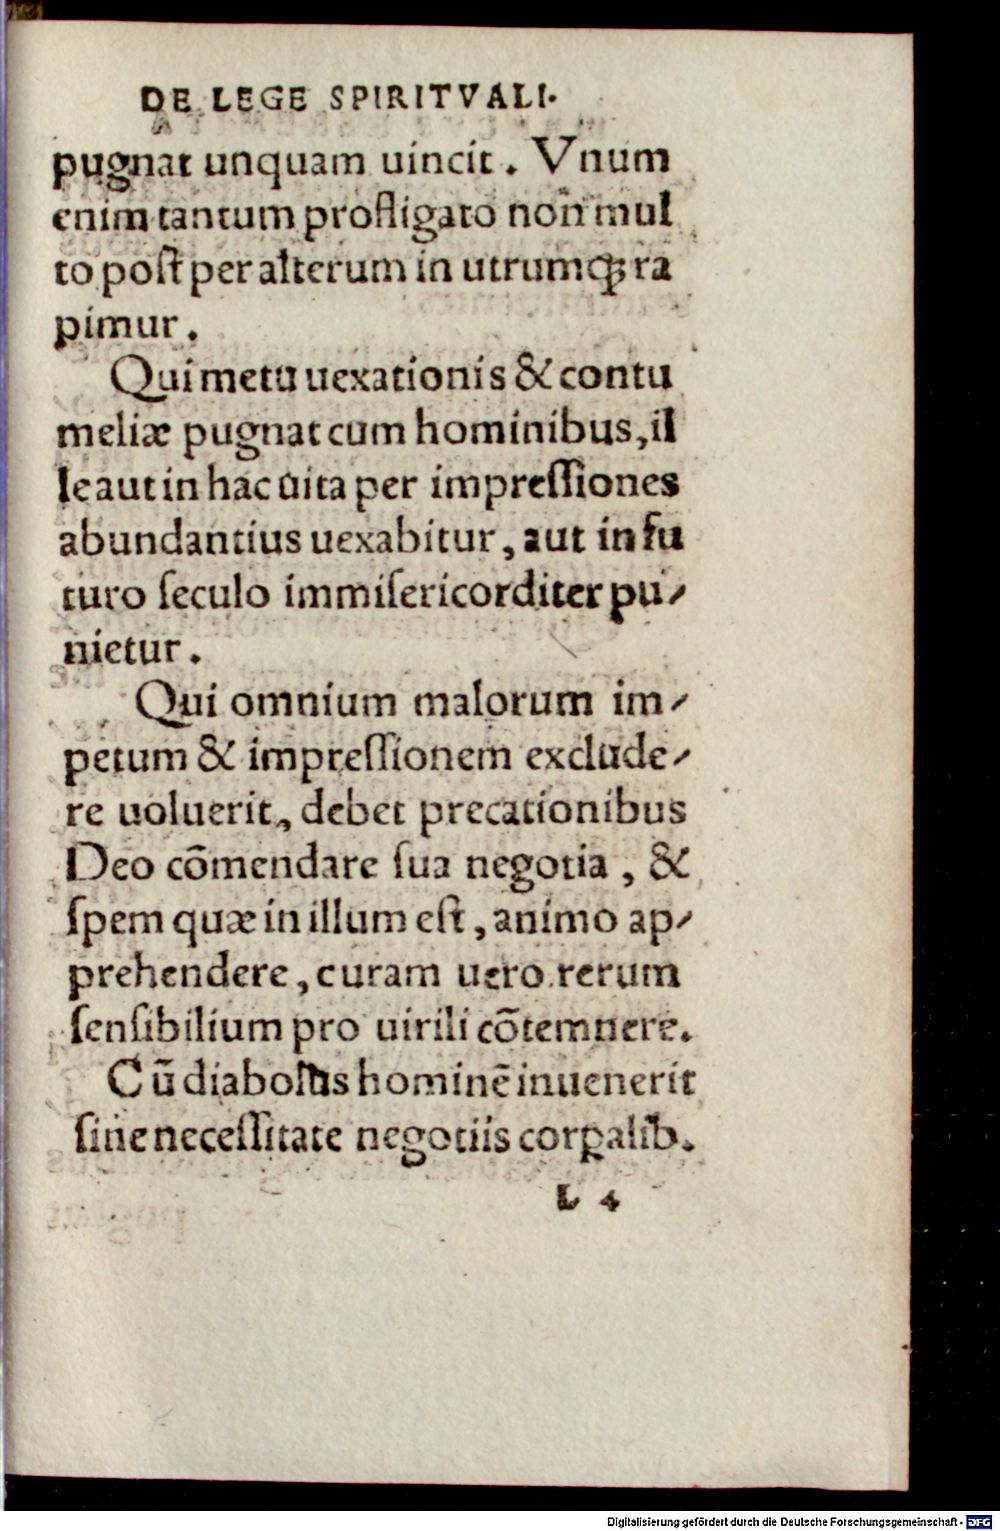 DE LEGE SPIRITVALI.
pugnat unquam uincit. Vnum
enim tantum profligato non mul
to poſt per alterum in utrumq́ꝫ ra
pimur.
Qui metu uexationis & contu
meliæ pugnat cum hominibus, il
le aut in hac uita per impreſſiones
abundantius uexabitur, aut in fu
turo ſeculo immiſericorditer pu-
nietur.
Qui omnium malorum im-
petum & impreſſionem exclude-
re uoluerit, debet precationibus
Deo cōmendare ſua negotia, &
ſpem quæ in illum eſt, animo ap-
prehendere, curam uero rerum
ſenſibilium pro uirili cōtemnere.
Cū diabolus hominē inuenerit
ſine neceſſitate negotiis corꝑalib.
L 4
Digitalisierung gefördert durch die Deutsche Forschungsgemeinschaft - DFG